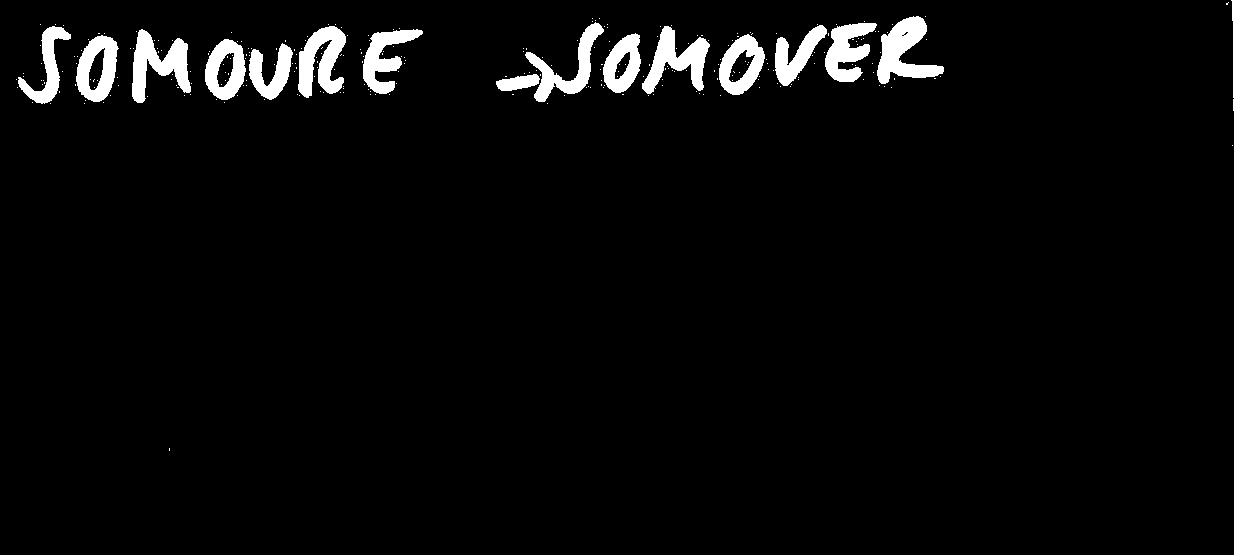 SOMOURE → SOMOVER